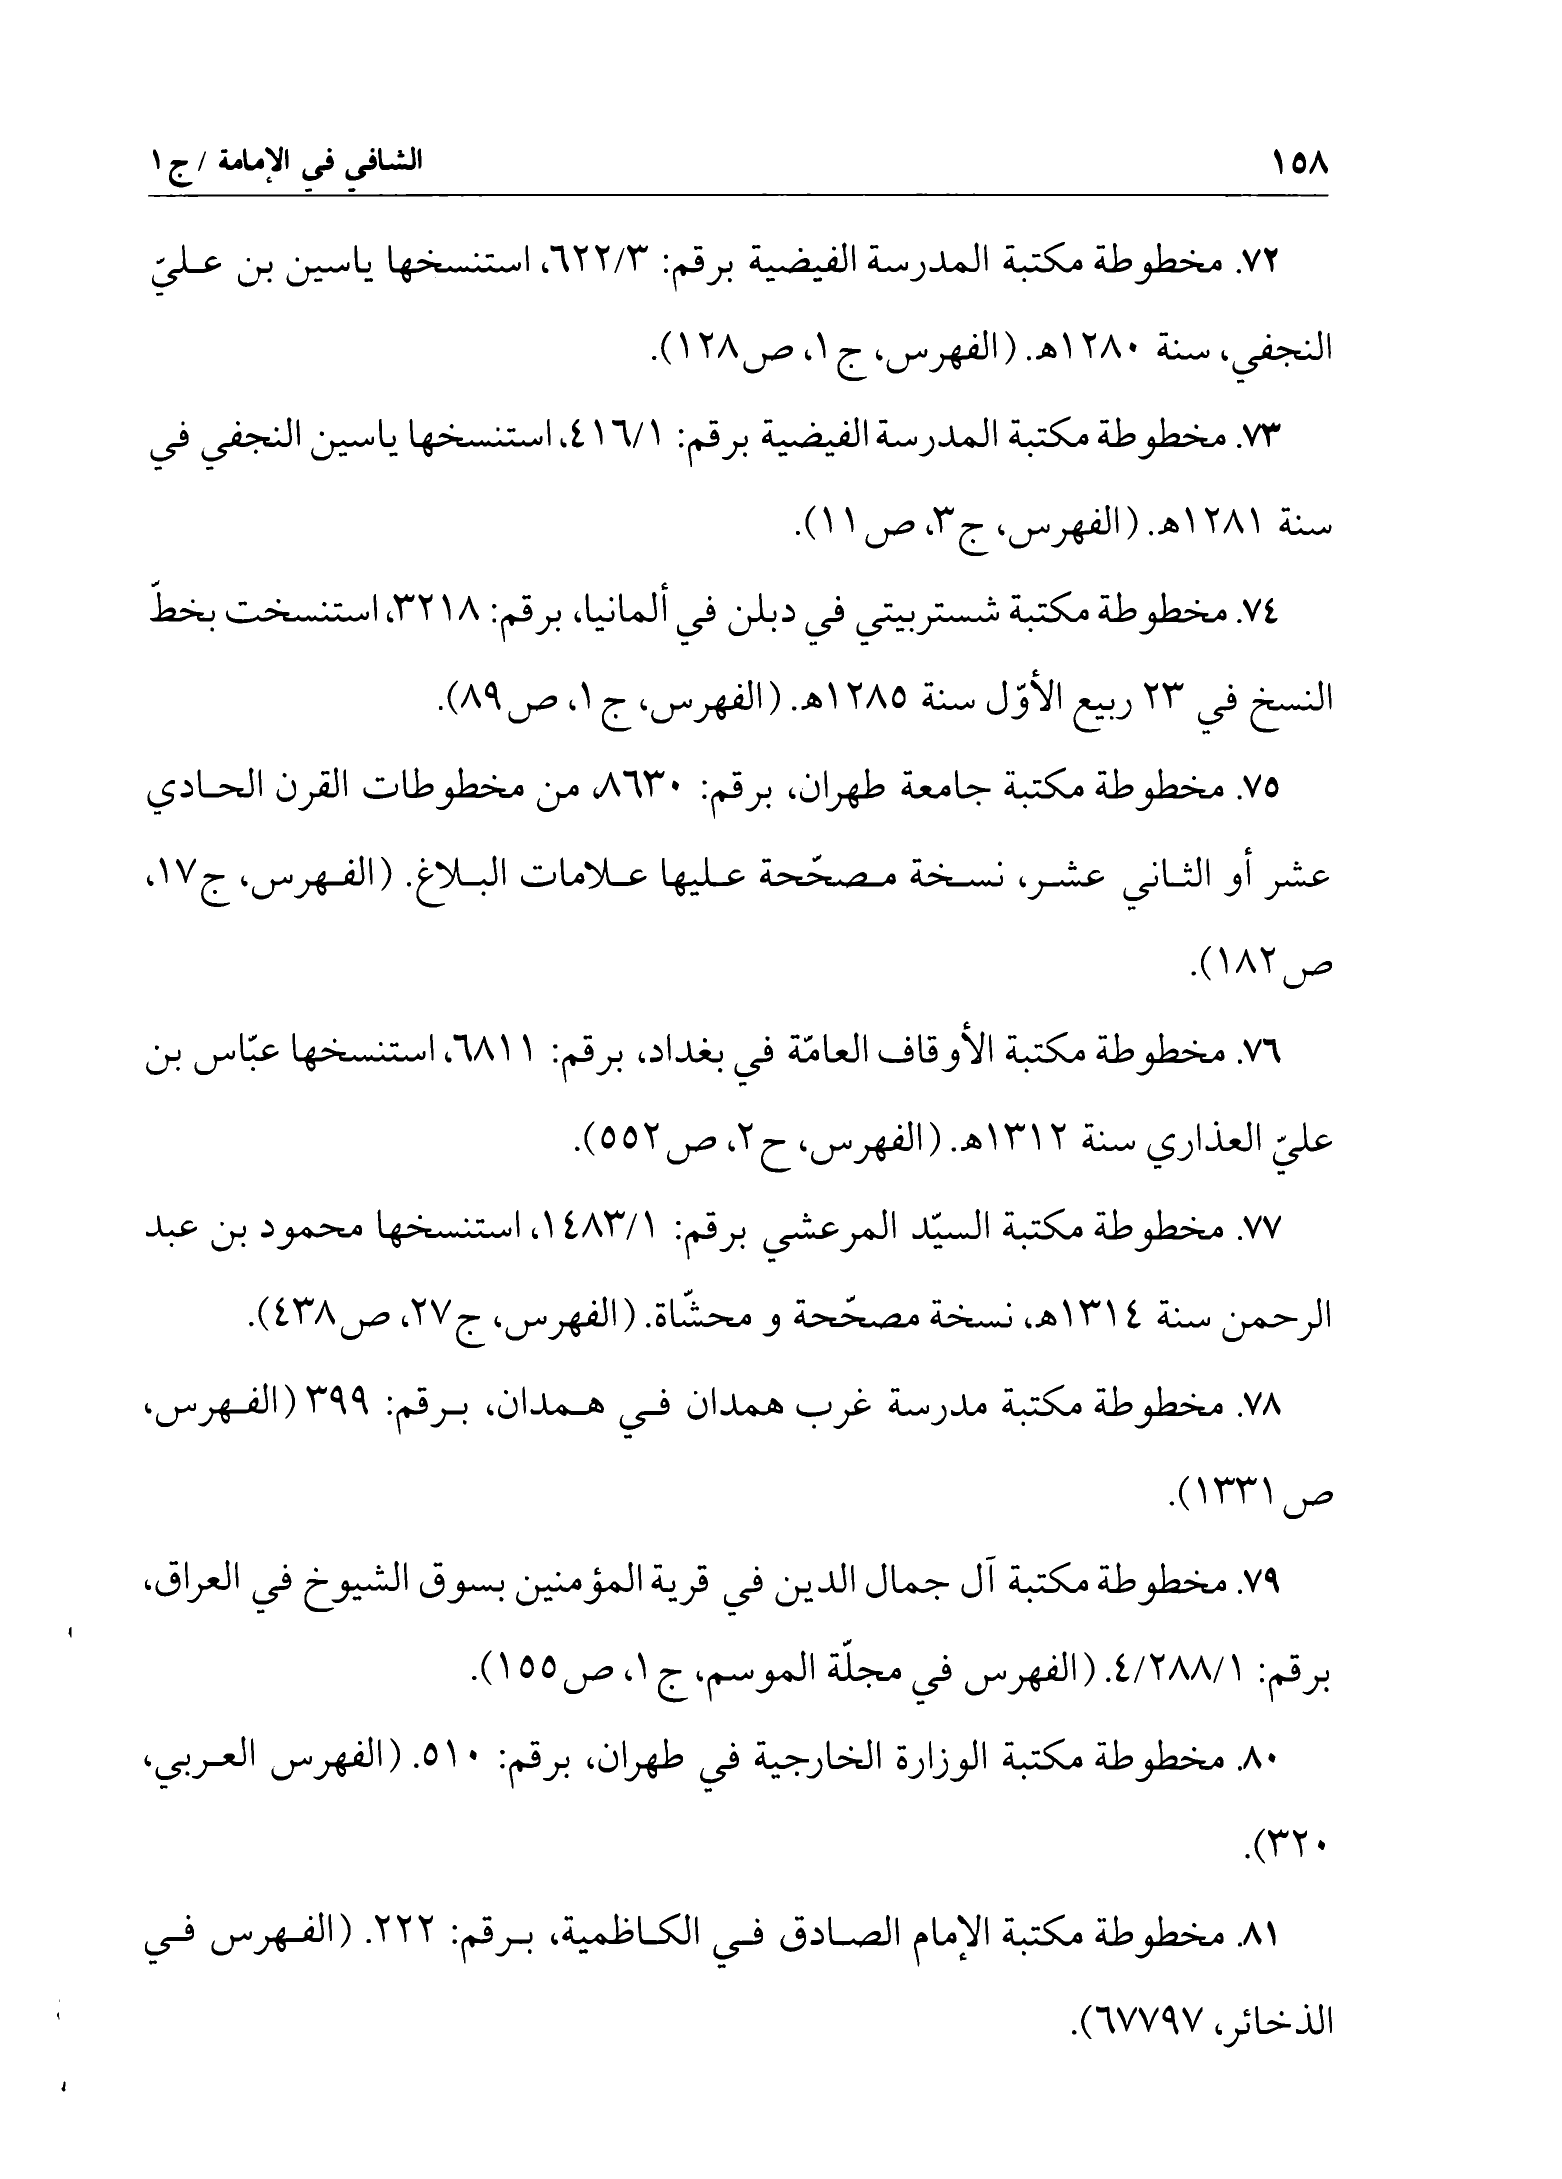 ١٥٨ الشافي في الإمامة / ج ١
٧٢. مخطوطة مكتبة المدرسة الفيضية برقم: ٦٢٢/٣، استنسخها ياسين بن عليّ
النجفي، سنة ١٢٨٠هـ. (الفهرس، ج ١، ص١٢٨).
٧٣. مخطوطة مكتبة المدرسة الفيضية برقم: ٤١٦/١، استنسخها ياسين النجفي في
سنة ١٢٨١هـ. (الفهرس، ج٣، ص١١).
٧٤. مخطوطة مكتبة شستربيتي في دبلن في ألمانيا، برقم: ٣٢١٨، استنسخت بخطّ
النسخ في ٢٣ ربيع الأوّل سنة ١٢٨٥هـ. (الفهرس، ج ١، ص٨٩).
٧٥. مخطوطة مكتبة جامعة طهران، برقم: ٨٦٣٠، من مخطوطات القرن الحادي
عشر أو الثاني عشر، نسخة مصحّحة عليها علامات البلاغ. (الفهرس، ج١٧،
ص١٨٢).
٧٦. مخطوطة مكتبة الأوقاف العامّة في بغداد، برقم: ٦٨١١، استنسخها عبّاس بن
عليّ العذاري سنة ١٣١٢هـ. (الفهرس، ح٢، ص٥٥٢).
٧٧. مخطوطة مكتبة السيّد المرعشي برقم: ١٤٨٣/١، استنسخها محمود بن عبد
الرحمن سنة ١٣١٤هـ، نسخة مصحّحة و محشّاة. (الفهرس، ج٢٧، ص٤٣٨).
٧٨. مخطوطة مكتبة مدرسة غرب همدان في همدان، برقم: ٣٩٩ (الفهرس،
ص١٣٣١).
٧٩. مخطوطة مكتبة آل جمال الدين في قرية المؤمنين بسوق الشيوخ في العراق،
برقم: ٤/٢٨٨/١. (الفهرس في مجلّة الموسم، ج ١، ص١٥٥).
٨٠. مخطوطة مكتبة الوزارة الخارجية في طهران، برقم: ٥١٠. (الفهرس العربي،
٣٢٠).
٨١. مخطوطة مكتبة الإمام الصادق في الكاظمية، برقم: ٢٢٢. (الفهرس في
الذخائر، ٦٧٧٩٧).